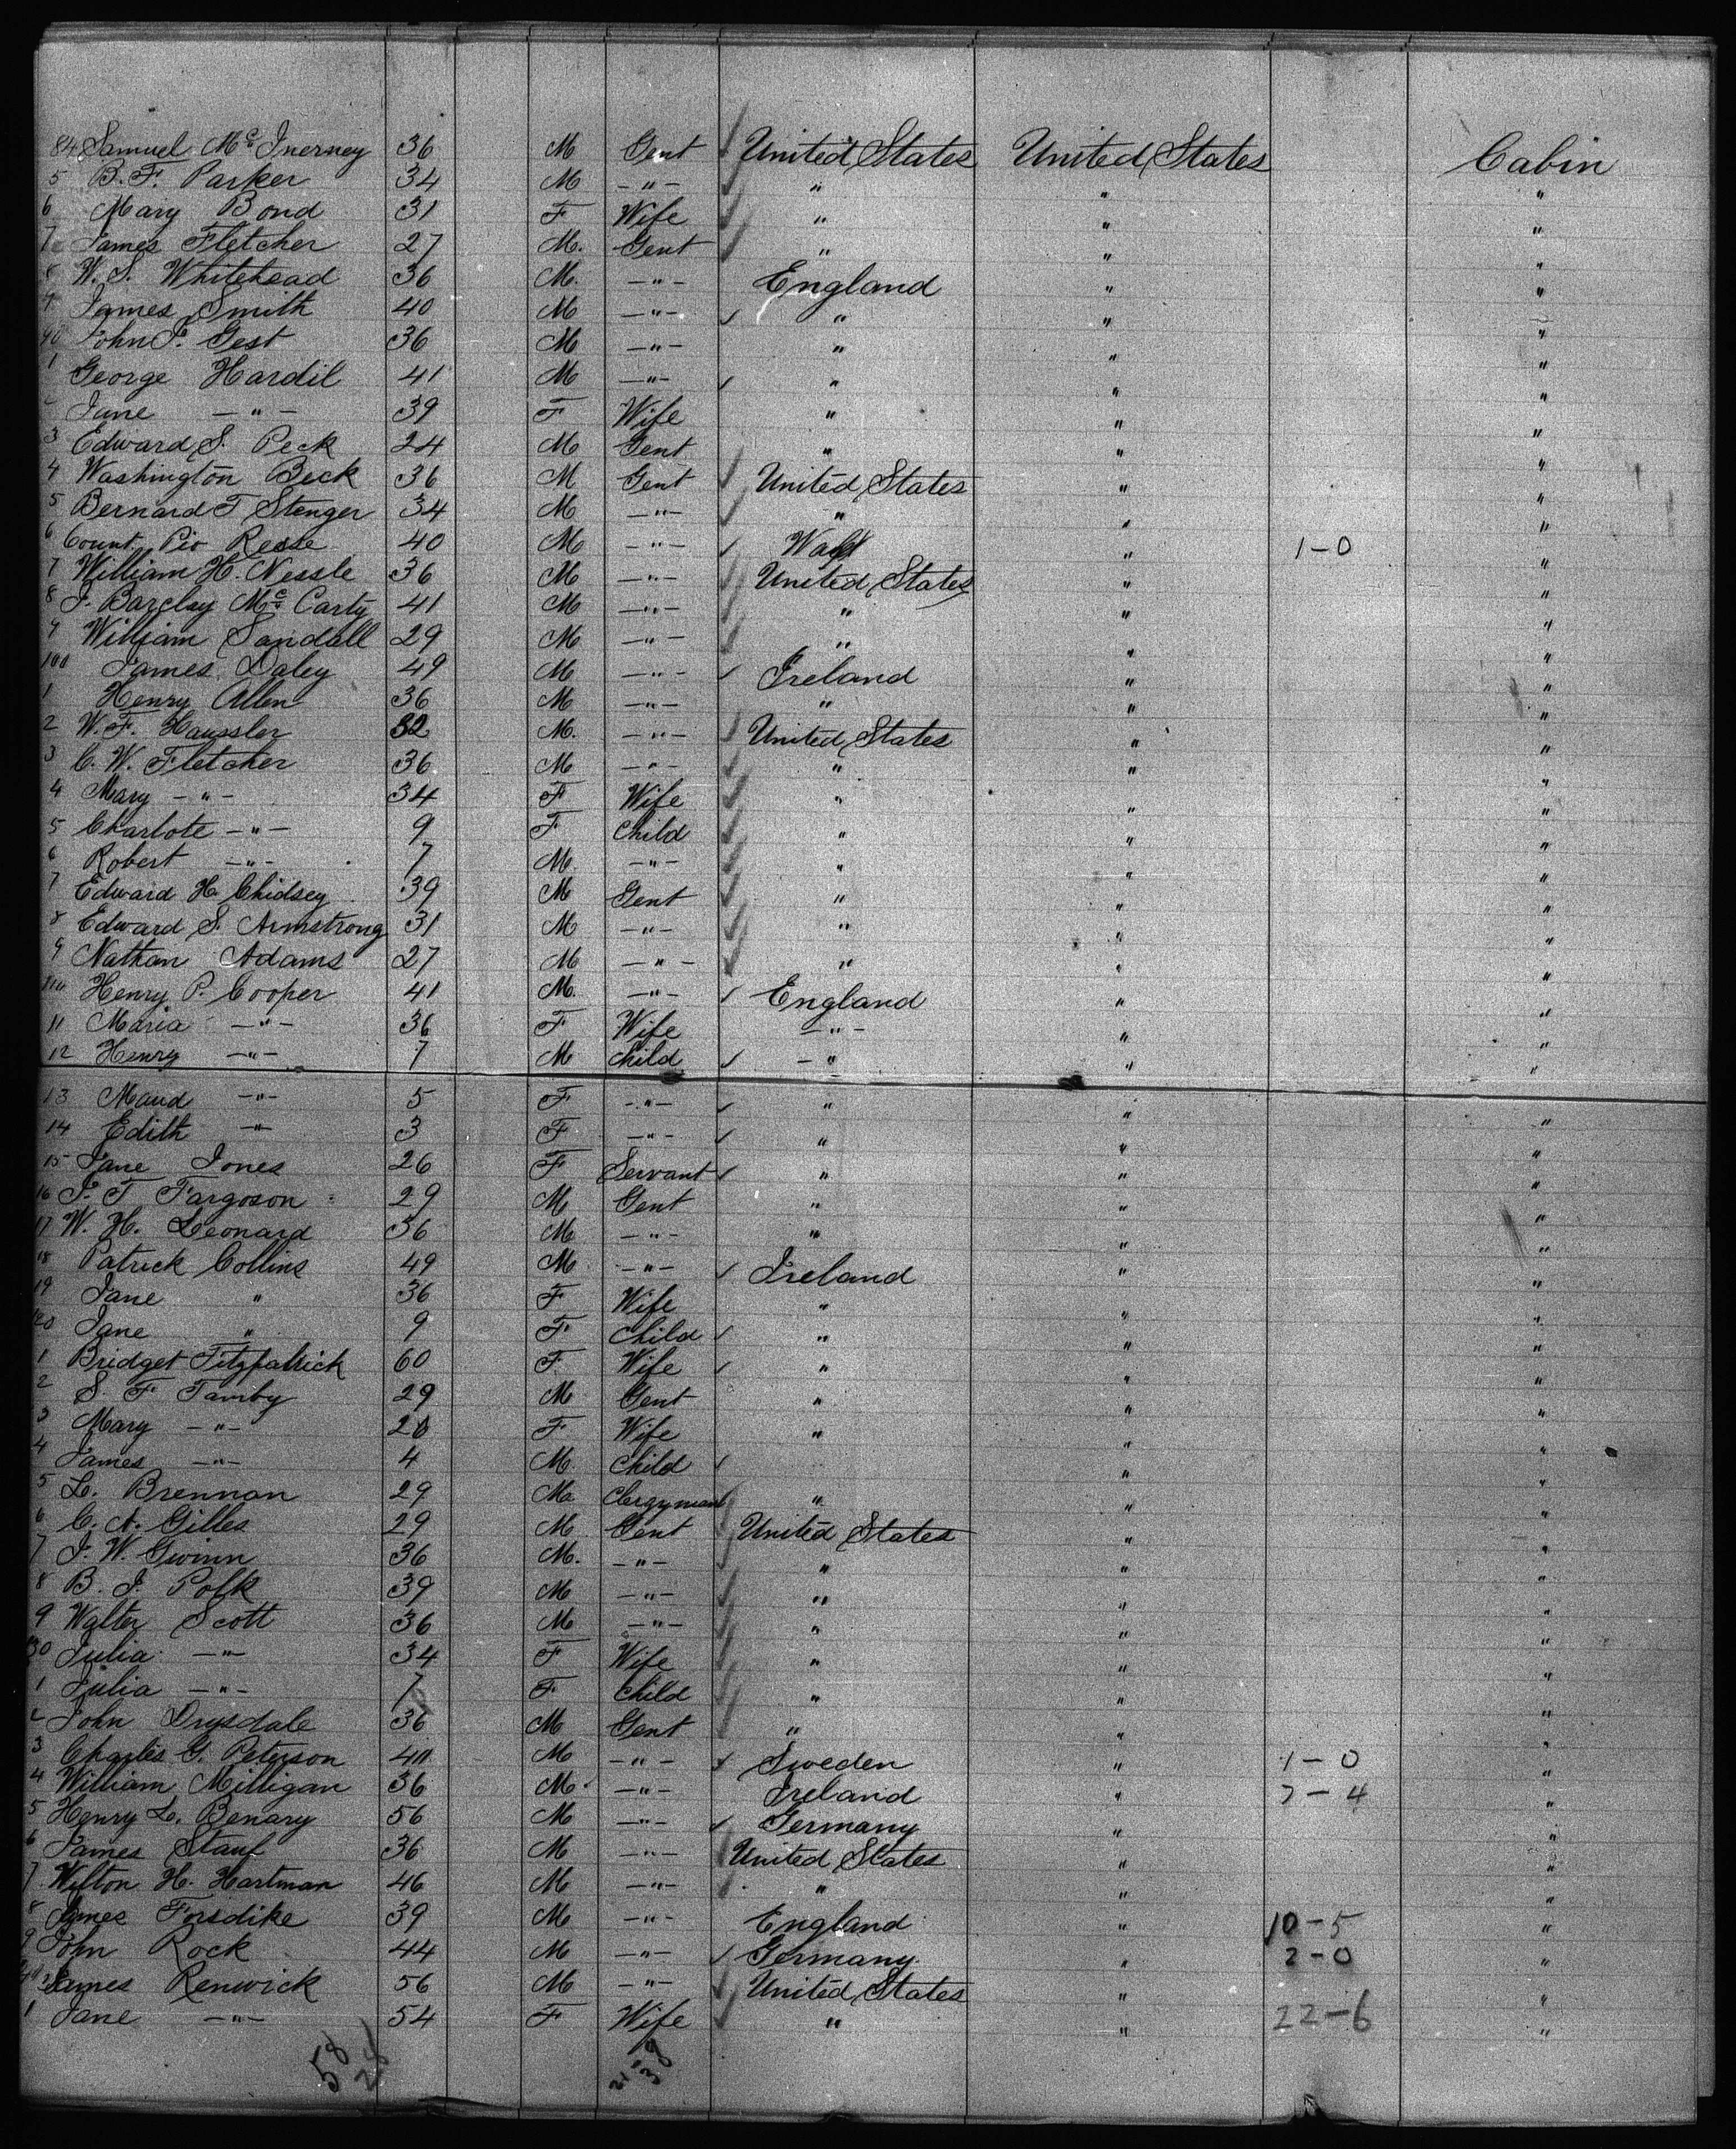 84 Samuel McInerney 36 M Gent United States United States Cabin
5 B. F. Parker 34 M -"- " " "
6 Mary Bond 31 F Wife " " "
7 James Fletcher 27 M. Gent " " "
8 W. S. Whitehead 36 M. -"- England " "
9 James Smith 40 M -"- " " "
90 John F. Gest 36 M -"- " " "
1 George Hardil 41 M -"- " " "
Jane -"- 39 F Wife " " "
3 Edward S. Peck 24 M Gent " " "
4 Washington Beck 36 M Gent United States " "
5 Bernard F Stenger 34 M -"- " " "
6 Count Pio 40 M -"- " 1-0 "
7 William H. Nessle 36 M -"- United States " "
8 J. Barclay McCarty 41 M -"- " " "
9 William Sandall 29 M -"- " " "
100 James Daley 49 M -"- Ireland " "
1 Henry Allen 36 M -"- " " "
2 W. F. Haussler 32 M. -"- United States " "
3 C. W. Fletcher 36 M -"- " " "
4 Mary -"- 34 F Wife " " "
5 Charlote -"- 9 F Child " " "
6 Robert -"- 7 M. -"- " " "
7 Edward H. Chidsey 39 M Gent " " "
8 Edward S. Armstrong 31 M -"- " " "
9 Nathan Adams 27 M -"- " " "
110 Henry P. Cooper 41 M. -"- England " "
11 Maria -"- 36 F Wife -"- " "
12 Henry -"- 7 M Child -" " "
13 Maud -"- 5 F -"- " " "
14 Edith -"- 3 F -"- " " "
15 Jane Jones 26 F Servant " " "
16 J. T Fargoson 29 M Gent " " "
17 W. H. Leonard 36 M -"- " " "
18 Patrick Collins 49 M -"- Ireland " "
19 Jane " 36 F Wife " " "
120 Jane " 9 F Child " " "
1 Bridget Fitzpatrick 60 F Wife " " "
2 S. F Tamby 29 M Gent " " "
3 Mary -"- 28 F Wife " " "
4 James -"- 4 M. Child " "
5 L. Brennan 29 M Clergyman " " "
6 C. A. Gilles 29 M Gent United States " "
7 J. W. Gwinn 36 M. -"- " " "
8 B. J. Polk 39 M -"- " " "
9 Walter Scott 36 M -"- " " "
130 Julia -"- 34 F Wife " " "
1 Julia -"- 7 F Child " " "
2 John Drysdale 36 M Gent " " "
3 Charles G. Peterson 40 M -"- Sweden " 1-0 "
4 William Milligan 36 M -"- Ireland " 7-4 "
5 Henry L. Benary 56 M -"- Germany " "
6 James Stauf 36 M -"- United States " "
7 Wilton H. Hartman 46 M -"- " " "
8 James Forsdike 39 M -"- England " 10-5 "
9 John Rock 44 M -"- Germany " 2-0 "
140 James Renwick 56 M -"- United States " "
1 Jane -"- 54 F Wife " " 22-6 "
58